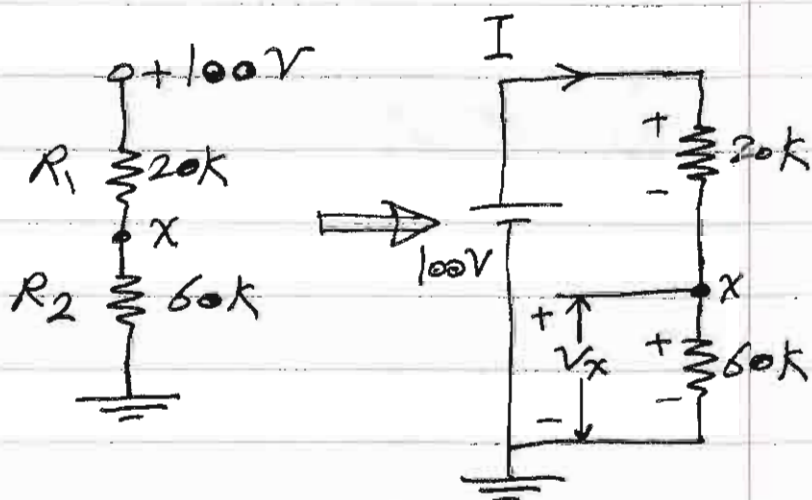 +100V
R1 20K
X
R2 60K
I
+
20K
-
100V
X
+
Vx
-
+
60K
-